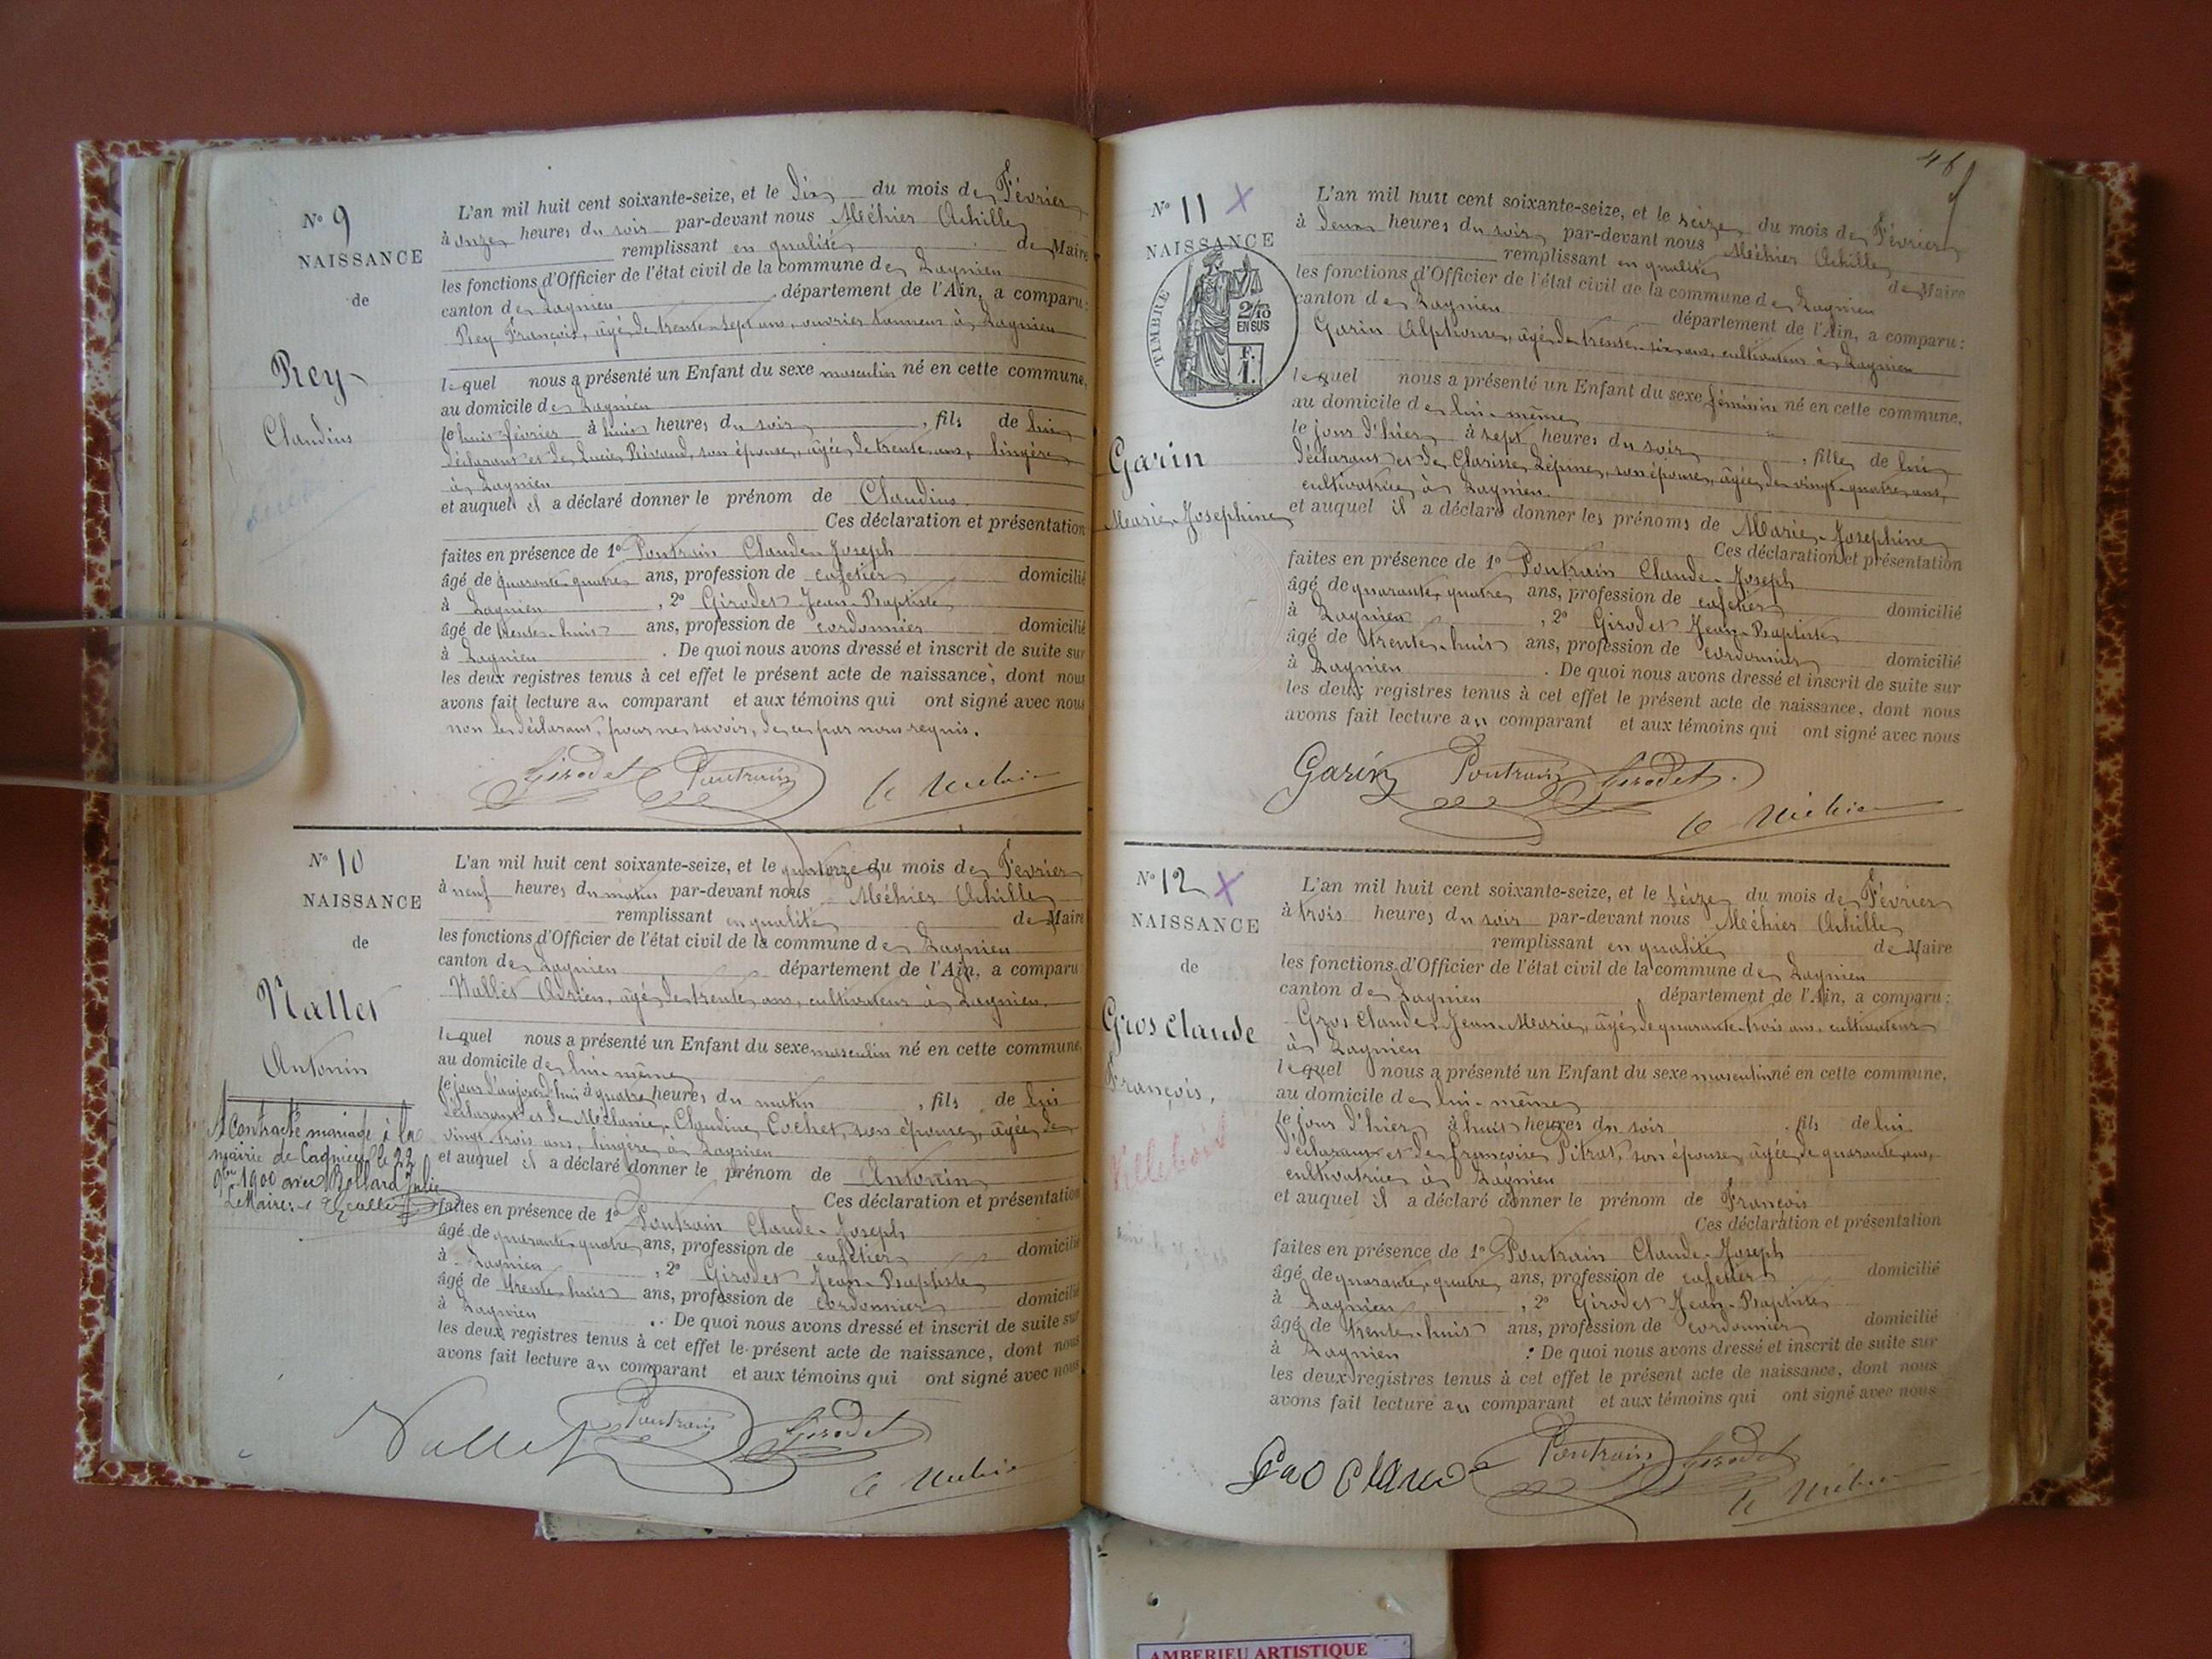 N° 9
NAISSANCE
de
Rey
Claudius
L'an mil huit cent soixante-seize, et le dix du mois de Février
à onze heures du soir par-devant nous Méhier Achille
remplissant en qualité de Maire
les fonctions d'Officier de l'état civil de la commune de Lagnieu
canton de Lagnieu département de l'Ain, a comparu:
Rey François, âgé de trente-sept ans, ouvrier tanneur à Lagnieu
lequel nous a présenté un Enfant du sexe masculin né en cette commune,
au domicile de Lagnieu
le huit février à huit heures du soir, fils de lui
déclarant et de Lucie son épouse, âgée de trente ans, lingère
à Lagnieu
et auquel il a déclaré donner le prénom de Claudius
Ces déclaration et présentation
faites en présence de 1° Poutrain Claude-Joseph
âgé de quarante-quatre ans, profession de cafetier domicilié
à Lagnieu, 2° Girodet Jean-Baptiste
âgé de trente-huit ans, profession de cordonnier domicilié
à Lagnieu. De quoi nous avons dressé et inscrit de suite sur
les deux registres tenus à cet effet le présent acte de naissance, dont nous
avons fait lecture au comparant et aux témoins qui ont signé avec nous
non le déclarant, pour ne savoir, de ce par nous requis.
Girodet Poutrain A Méhier
N° 10
NAISSANCE
de
Nallet
Antonin
A contracté mariage à la
mairie de Lagnieu le 22
9bre 1900 avec Rollard Julie
Le Maire:
L'an mil huit cent soixante-seize, et le quatorze du mois de Février
à neuf heures du matin par-devant nous Méhier Achille
remplissant en qualité de Maire
les fonctions d'Officier de l'état civil de la commune de Lagnieu
canton de Lagnieu département de l'Ain, a comparu
Nallet Adrien, âgé de trente ans, cultivateur à Lagnieu.
lequel nous a présenté un Enfant du sexe masculin né en cette commune,
au domicile de lui-même
le jour d'aujourd'hui à quatre heures du matin, fils de lui
déclarant et de Mélanie-Claudine Cochet, son épouse, âgée de
vingt-trois ans, lingère à Lagnieu
et auquel il a déclaré donner le prénom de Antonin
Ces déclaration et présentation
faites en présence de 1° Poutrain Claude-Joseph
âgé de quarante-quatre ans, profession de cafetier domicilié
à Lagnieu, 2° Girodet Jean-Baptiste
âgé de trente-huit ans, profession de cordonnier domicilié
à Lagnieu. De quoi nous avons dressé et inscrit de suite sur
les deux registres tenus à cet effet le présent acte de naissance, dont nous
avons fait lecture au comparant et aux témoins qui ont signé avec nous
Nallet Poutrain Girodet
A Méhier
46
N° 11 X
NAISSANCE
TIMBRE
2/10
EN SUS
F.
1.
Garin
Marie-Josephine
L'an mil huit cent soixante-seize, et le seize du mois de Février
à deux heures du soir par-devant nous Méhier Achille
remplissant en qualité de Maire
les fonctions d'Officier de l'état civil de la commune de Lagnieu
canton de Lagnieu département de l'Ain, a comparu:
Garin Alphonse, âgé de trente-six ans, cultivateur à Lagnieu
lequel nous a présenté un Enfant du sexe féminin né en cette commune,
au domicile de lui-même
le jour d'hier à sept heures du soir, fille de lui
déclarant et de Clarisse Lépine, son épouse, âgée de vingt-quatre ans,
cultivatrice à Lagnieu.
et auquel il a déclaré donner les prénoms de Marie-Josephine
Ces déclaration et présentation
faites en présence de 1° Poutrain Claude-Joseph
âgé de quarante-quatre ans, profession de cafetier domicilié
à Lagnieu, 2° Girodet Jean-Baptiste
âgé de trente-huit ans, profession de cordonnier domicilié
à Lagnieu. De quoi nous avons dressé et inscrit de suite sur
les deux registres tenus à cet effet le présent acte de naissance, dont nous
avons fait lecture au comparant et aux témoins qui ont signé avec nous
Garin Poutrain Girodet
A Méhier
N° 12 X
NAISSANCE
de
Gros Claude
François,
Villebois
L'an mil huit cent soixante-seize, et le seize du mois de Février
à trois heures du soir par-devant nous Méhier Achille
remplissant en qualité de Maire
les fonctions d'Officier de l'état civil de la commune de Lagnieu
canton de Lagnieu département de l'Ain, a comparu:
Gros Claude Jean-Marie, âgé de quarante-trois ans, cultivateur
à Lagnieu
lequel nous a présenté un Enfant du sexe masculin né en cette commune,
au domicile de lui-même
le jour d'hier à huit heures du soir fils de lui
déclarant et de Françoise Pitrat, son épouse, âgée de quarante ans,
cultivatrice à Lagnieu
et auquel il a déclaré donner le prénom de François
Ces déclaration et présentation
faites en présence de 1° Poutrain Claude-Joseph
âgé de quarante-quatre ans, profession de cafetier domicilié
à Lagnieu, 2° Girodet Jean-Baptiste
âgé de trente-huit ans, profession de cordonnier domicilié
à Lagnieu : De quoi nous avons dressé et inscrit de suite sur
les deux registres tenus à cet effet le présent acte de naissance, dont nous
avons fait lecture au comparant et aux témoins qui ont signé avec nous
Poutrain Girodet
A Méhier
AMBERIEU ARTISTIQUE